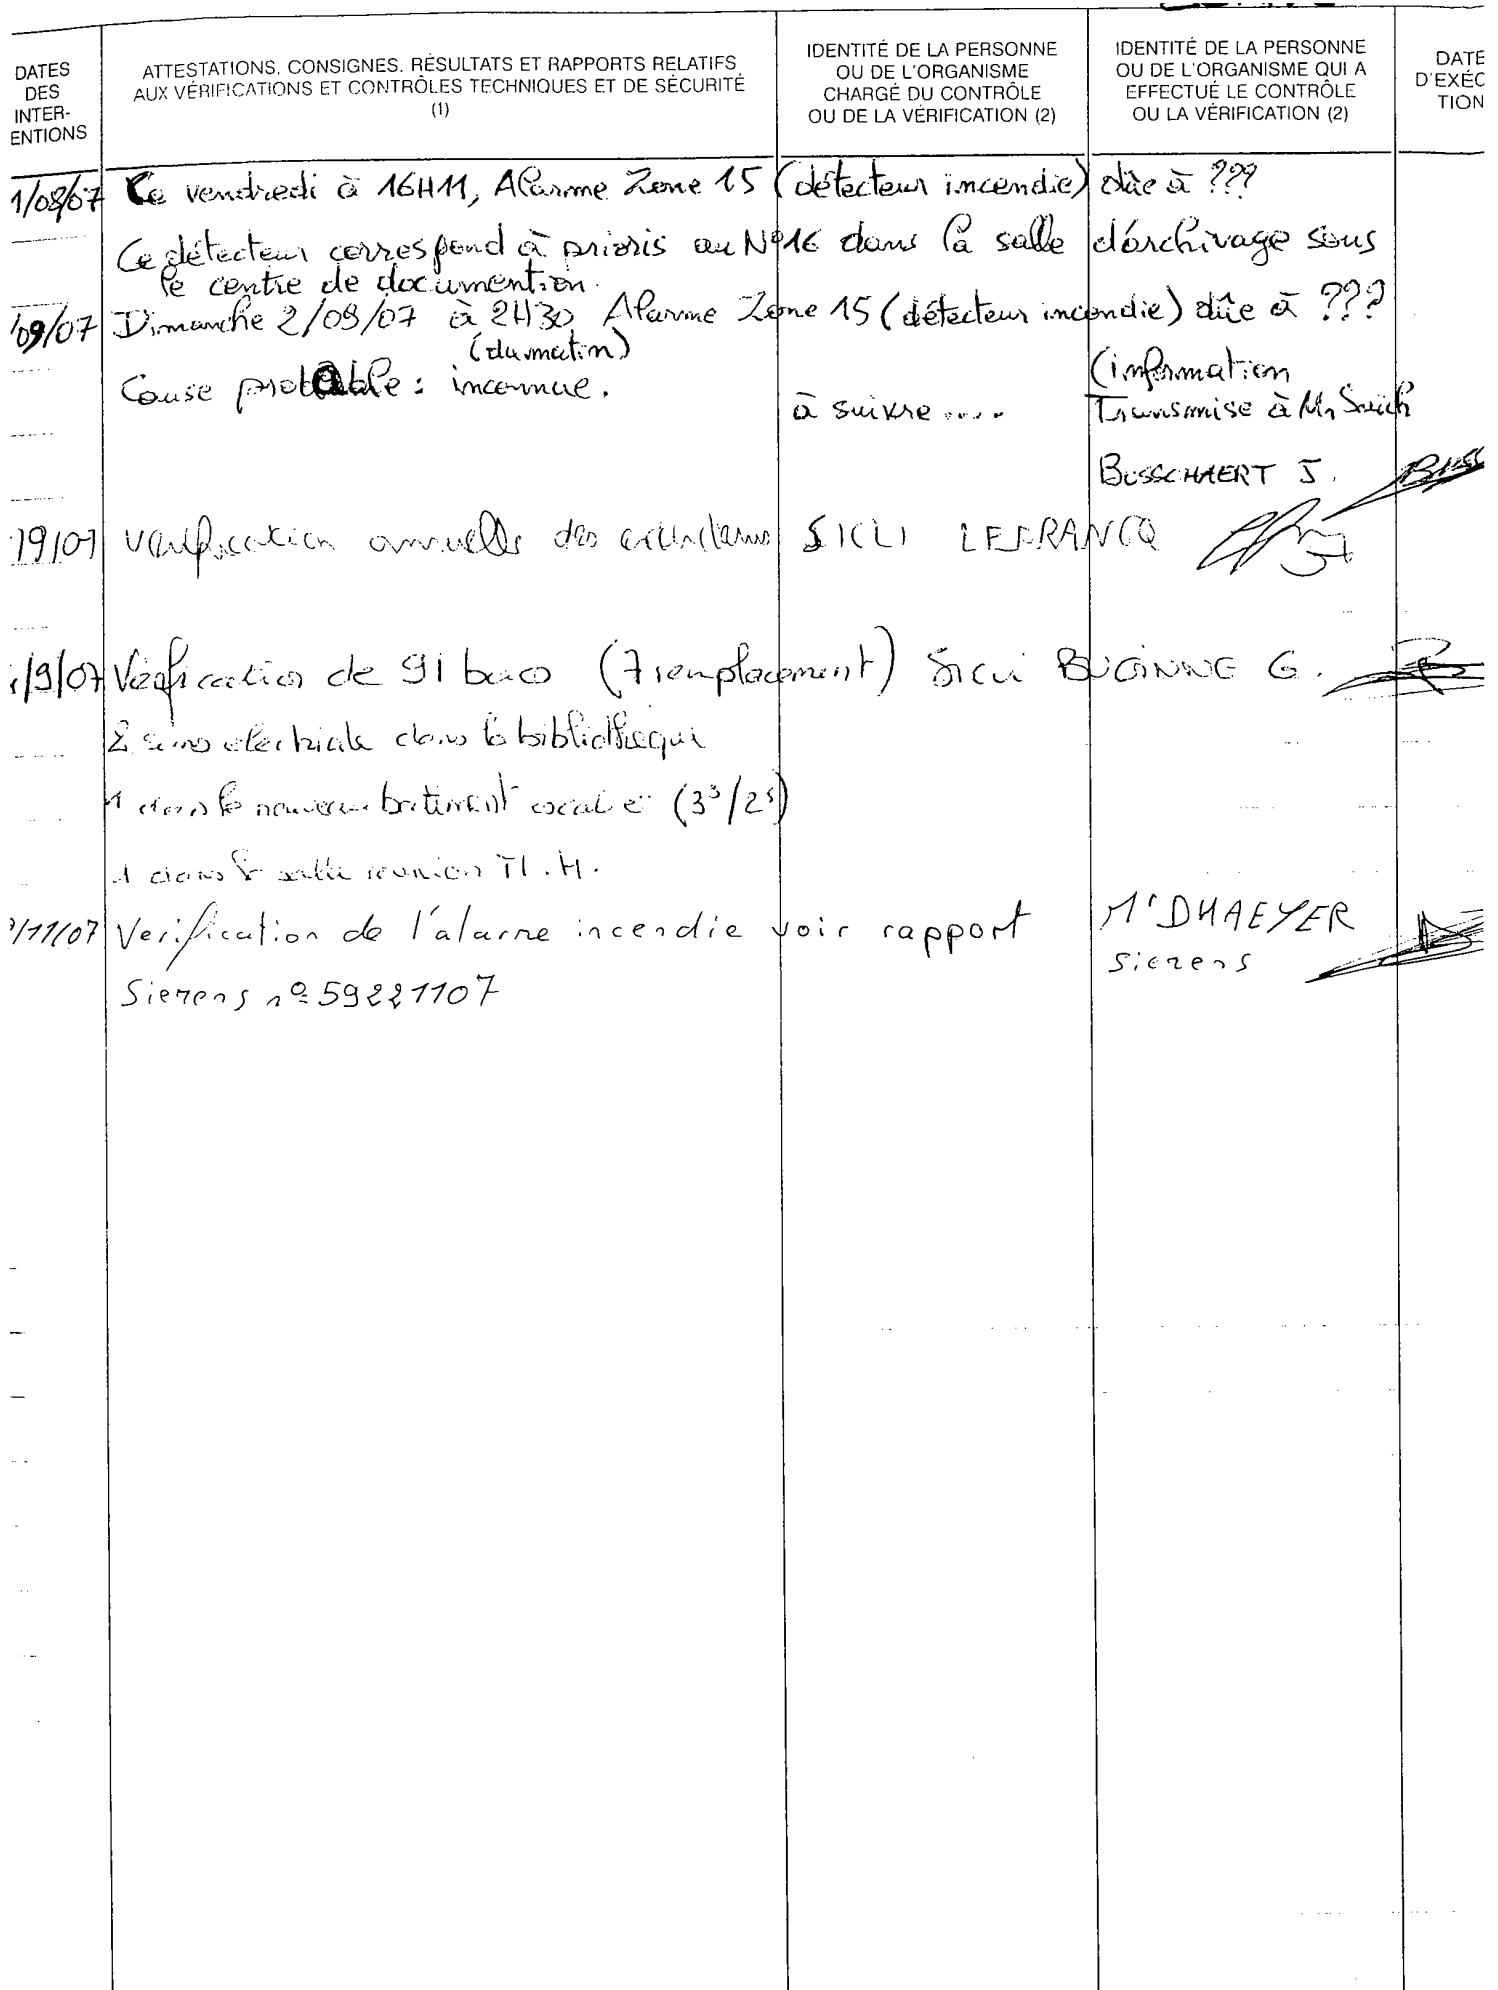 DATES
DES
INTER-
ENTIONS
ATTESTATIONS, CONSIGNES, RÉSULTATS ET RAPPORTS RELATIFS
AUX VÉRIFICATIONS ET CONTRÔLES TECHNIQUES ET DE SÉCURITÉ
(1)
IDENTITÉ DE LA PERSONNE
OU DE L'ORGANISME
CHARGÉ DU CONTRÔLE
OU DE LA VÉRIFICATION (2)
IDENTITÉ DE LA PERSONNE
OU DE L'ORGANISME QUI A
EFFECTUÉ LE CONTRÔLE
OU LA VÉRIFICATION (2)
DATE
D'EXÉC
TION
1/08/07 Ce vendredi à 16H11, Alarme Zone 15 (détecteur incendie) dûe à ???
Ce détecteur correspond à prioris au N°16 dans la salle d'archivage sous
le centre de documention.
/09/07 Dimanche 2/09/07 à 2H30 Alarme Zone 15 (détecteur incendie) dûe à ???
(du matin)
Cause probable : inconnue.
(information
à suivre .... Transmise à Mr
BUSSCHAERT J.
19/07 Verification annuelle des SICLI LEFRANCQ
/9/07 Vérification de 91 baco (7 remplacement) Sicli G.
2 dans la bibliotheque
1 dans le nouveau batiment (3°/2°)
1 dans la salle reunion
/11/07 Verification de l'alarme incendie voir rapport Mr DHAEYER
Siemens
Siemens n° 59221107